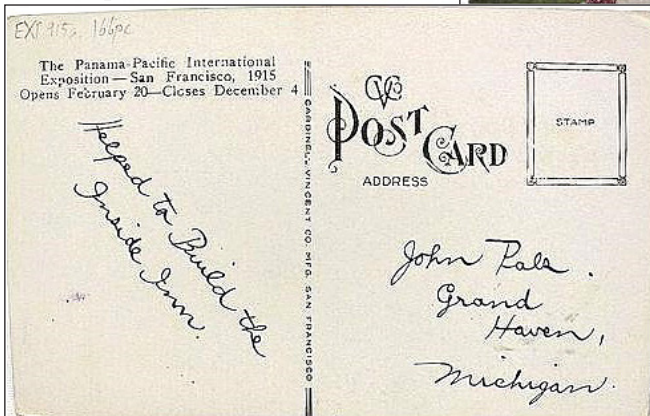 EXP 915a, 166pc
The Panama-Pacific International
Exposition—San Francisco, 1915
Opens February 20—Closes December 4
Helped to Build the
Inside Inn.
CARDINELL-VINCENT CO. MFG. SAN FRANCISCO
CVC
POST CARD
ADDRESS
STAMP
John
Grand
Haven,
Michigan.